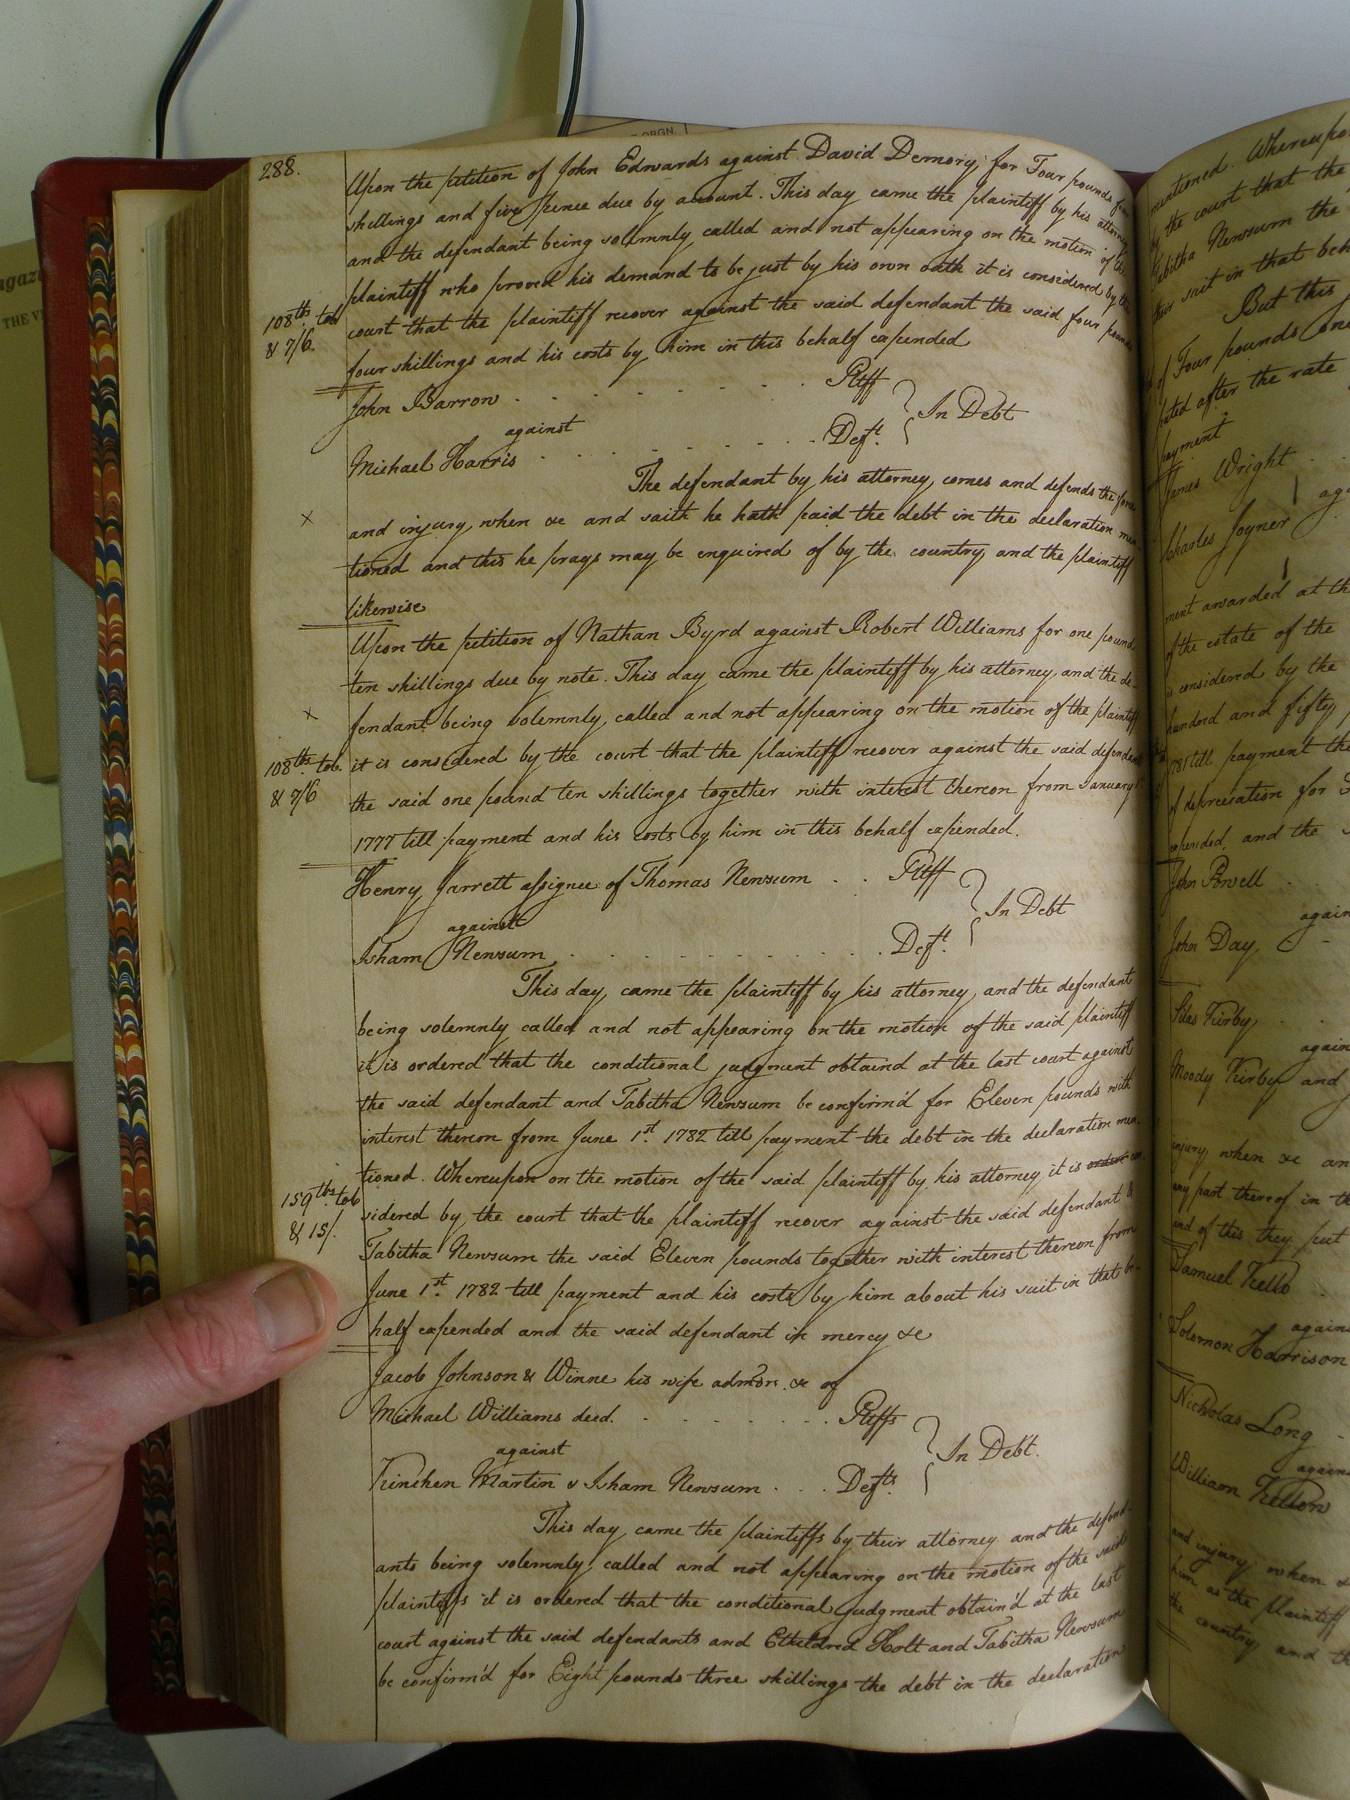 288.
Upon the petition of John Edwards against David Demory for Four pounds
shillings and five pence due by account. This day came the plaintiff by his attorney
and the defendant being solemnly called and not appearing on the motion of the
plaintiff who proved his demand to be just by his own oath it is considered by the
108lbs. tob court that the plaintiff recover against the said defendant the said four pounds
& 7/6. four shillings and his costs by him in this behalf expended
John Barrow . . . . . Pltff
against } In Debt
Michael Harris . . . . . Deft.
The defendant by his attorney comes and defends the force
x and injury when &c and saith he hath paid the debt in the declaration men-
tioned and this he prays may be enquired of by the country and the plaintiff
likewise
Upon the petition of Nathan Byrd against Robert Williams for one pound
ten shillings due by note. This day came the plaintiff by his attorney and the de-
x fendant being solemnly called and not appearing on the motion of the plaintiff
108lbs. tob. it is considered by the court that the plaintiff recover against the said defendant
& 7/6 the said one pound ten shillings together with interest thereon from January
1777 till payment and his costs by him in this behalf expended.
Henry Jarrett assignee of Thomas Newsum . . Pltff
against } In Debt
Isham Newsum . . . . . Deft.
This day came the plaintiff by his attorney and the defendant
being solemnly called and not appearing on the motion of the said plaintiff
it is ordered that the conditional judgment obtaind at the last court against
the said defendant and Tabitha Newsum be confirm'd for Eleven pounds with
interest thereon from June 1st. 1782 till payment the debt in the declaration men-
tioned. Whereupon on the motion of the said plaintiff by his attorney it is order con
159lbs. tob sidered by the court that the plaintiff recover against the said defendant &
& 15/. Tabitha Newsum the said Eleven pounds together with interest thereon from
June 1st. 1782 till payment and his costs by him about his suit in that be-
half expended and the said defendant in mercy &c
Jacob Johnson & Winne his wife admor. &c of
Michael Williams decd. . . . . . Pltffs
against } In Debt.
Kinchen Martin & Isham Newsum . . . Defts.
This day came the plaintiffs by their attorney and the defend-
ants being solemnly called and not appearing on the motion of the said
plaintiffs it is ordered that the conditional judgment obtain'd at the last
court against the said defendants and Etheldred Holt and Tabitha Newsum
be confirm'd for Eight pounds three shillings the debt in the declaration
mentioned. Whereupon
by the court that the
Tabitha Newsum the
this suit in that beh
But this
of Four pounds one
puted after the rate
payment
James Wright
aga
Charles Joyner
ment awarded at th
of the estate of the
is considered by the
hundred and fifty
1781 till payment the
of depreciation for
expended, and the
John Powell
again
John Day
Silas Kirby
again
Moody Kirby and
injury when &c an
any part thereof in th
and of this they put
Samuel Kello
again
Solomon Harrison
Nicholas Long
again
William Kelton
and injury when &
him as the plaintiff
the country and th